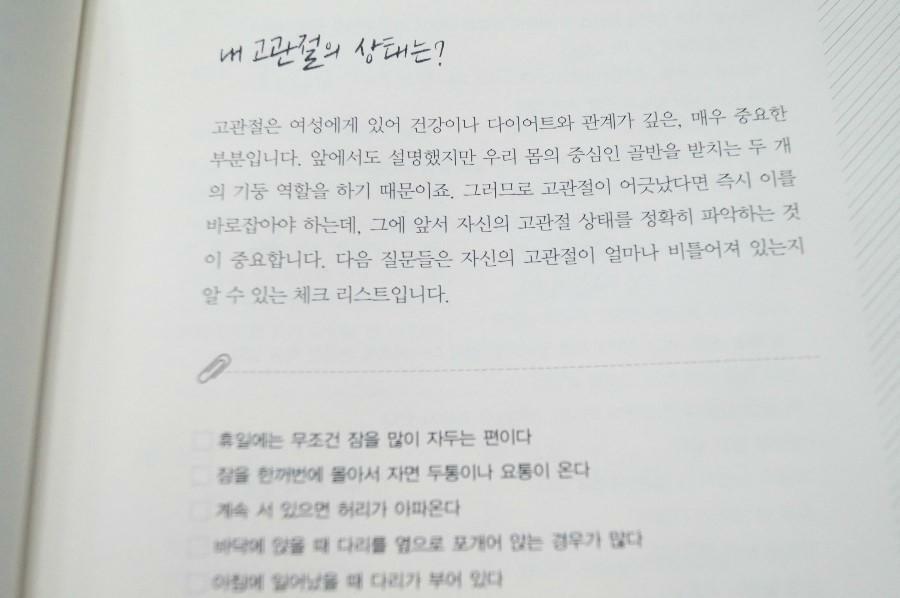 내 고관절의 상태는?
고관절은 여성에게 있어 건강이나 다이어트와 관계가 깊은, 매우 중요한
부분입니다. 앞에서도 설명했지만 우리 몸의 중심인 골반을 받치는 두 개
의 기둥 역할을 하기 때문이죠. 그러므로 고관절이 어긋났다면 즉시 이를
바로잡아야 하는데, 그에 앞서 자신의 고관절 상태를 정확히 파악하는 것
이 중요합니다. 다음 질문들은 자신의 고관절이 얼마나 비틀어져 있는지
알 수 있는 체크 리스트입니다.
휴일에는 무조건 잠을 많이 자두는 편이다
잠을 한꺼번에 몰아서 자면 두통이나 요통이 온다
계속 서 있으면 허리가 아파온다
바닥에 앉을 때 다리를 옆으로 포개어 앉는 경우가 많다
아침에 일어났을 때 다리가 부어 있다